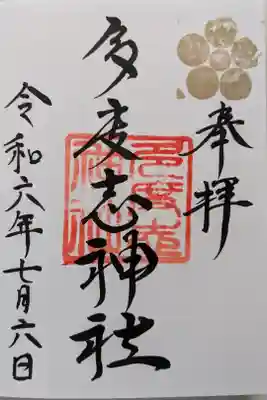 奉拝
多度志神社
令和六年七月六日